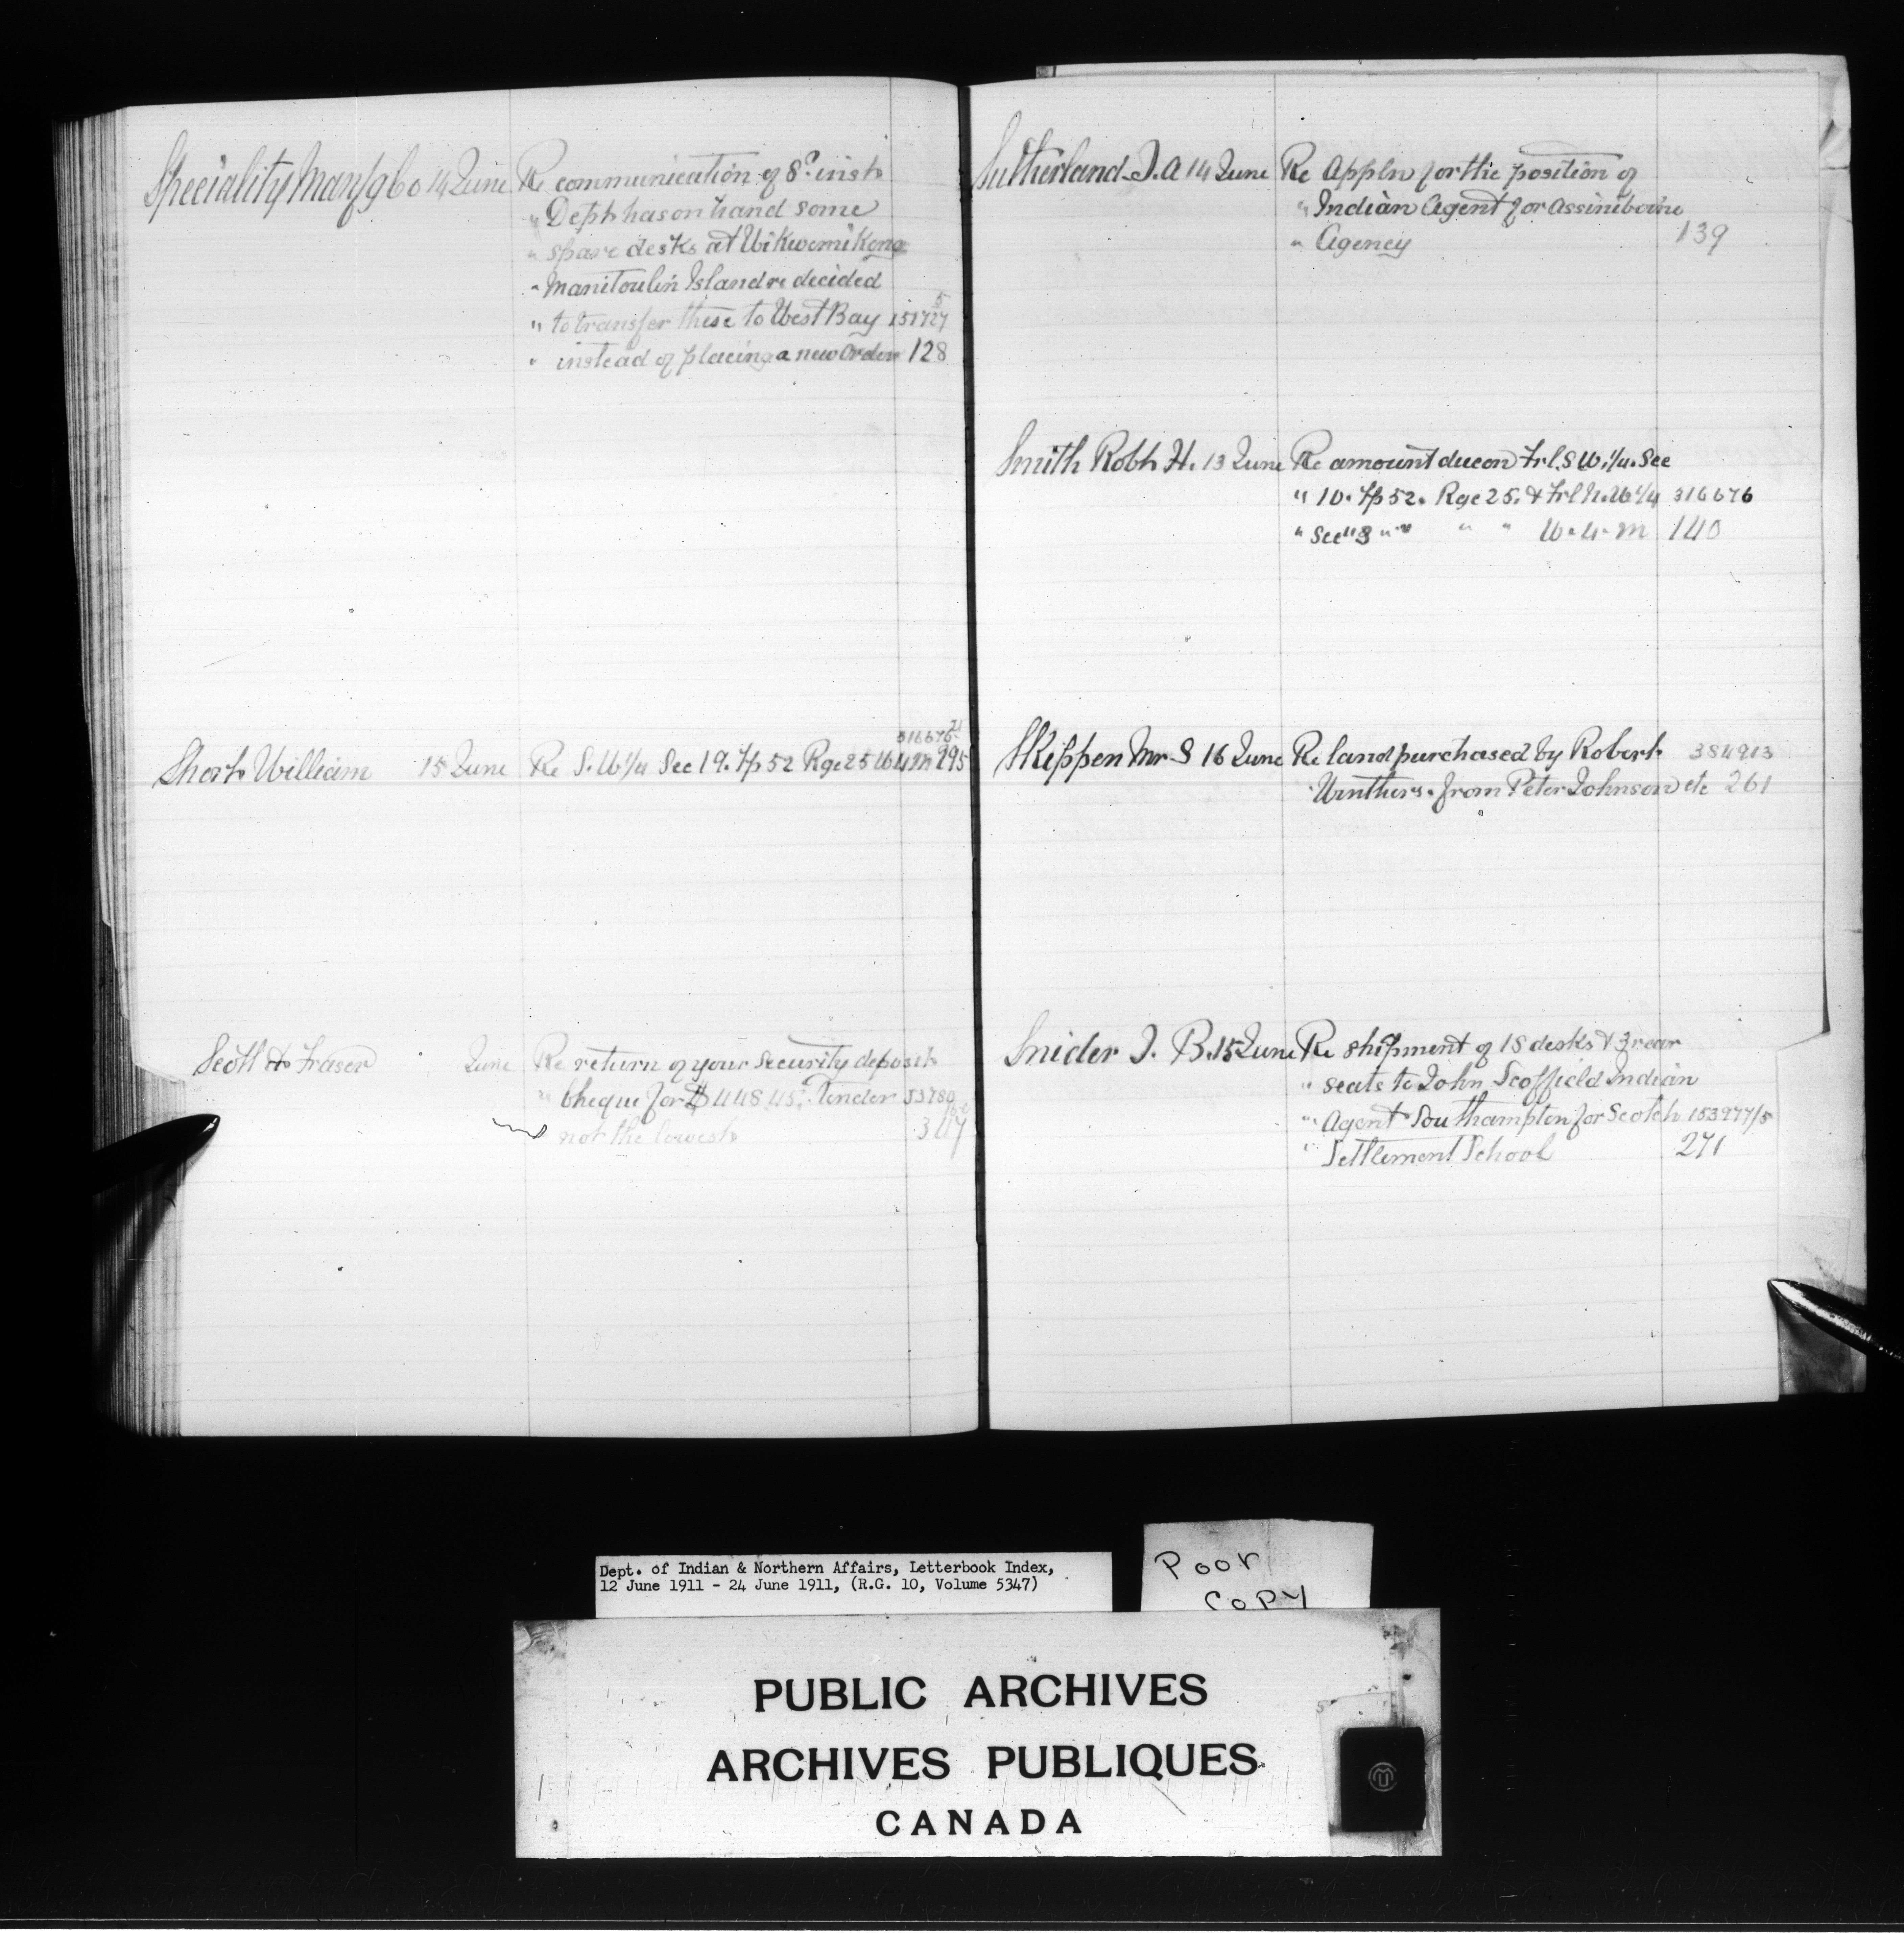 Speciality Manfg Co 14 June Re communication of 8th inst
" Dept has on hand some
" spare desks at Wikwemikong
" Manitoulin Island re decided
" to transfer these to West Bay 151727
5
" instead of placing a new order 128
Short William 15 June Re S.W 1/4 Sec 19. Tp 52 Rge 25 W 4 M 295
316676
Scott & Fraser June Re return of your security deposit
" Cheque for $448.45. Tender 53780
" not the lowest 347
Sutherland J. A 14 June Re Appln for the position of
" Indian Agent for Assiniboine
" Agency 139
Smith Robt H. 13 June Re amount due on Frl. S W. 1/4. Sec
" 10. Tp 52. Rge 25. & Frl N. W 1/4 316676
" Sec " 3 " " " " W. 4. M 140
Skippen Mr S 16 June Re land purchased by Robert 384913
" from Peter Johnson etc 261
Snider J. B. 15 June Re shipment of 18 desks & 3 rear
" seats to John Scoffield Indian
" Agent Southampton for Scotch 153977/5
" Settlement School 271
Dept. of Indian & Northern Affairs, Letterbook Index,
12 June 1911 - 24 June 1911, (R.G. 10, Volume 5347)
Poor
Copy
PUBLIC ARCHIVES
ARCHIVES PUBLIQUES
CANADA